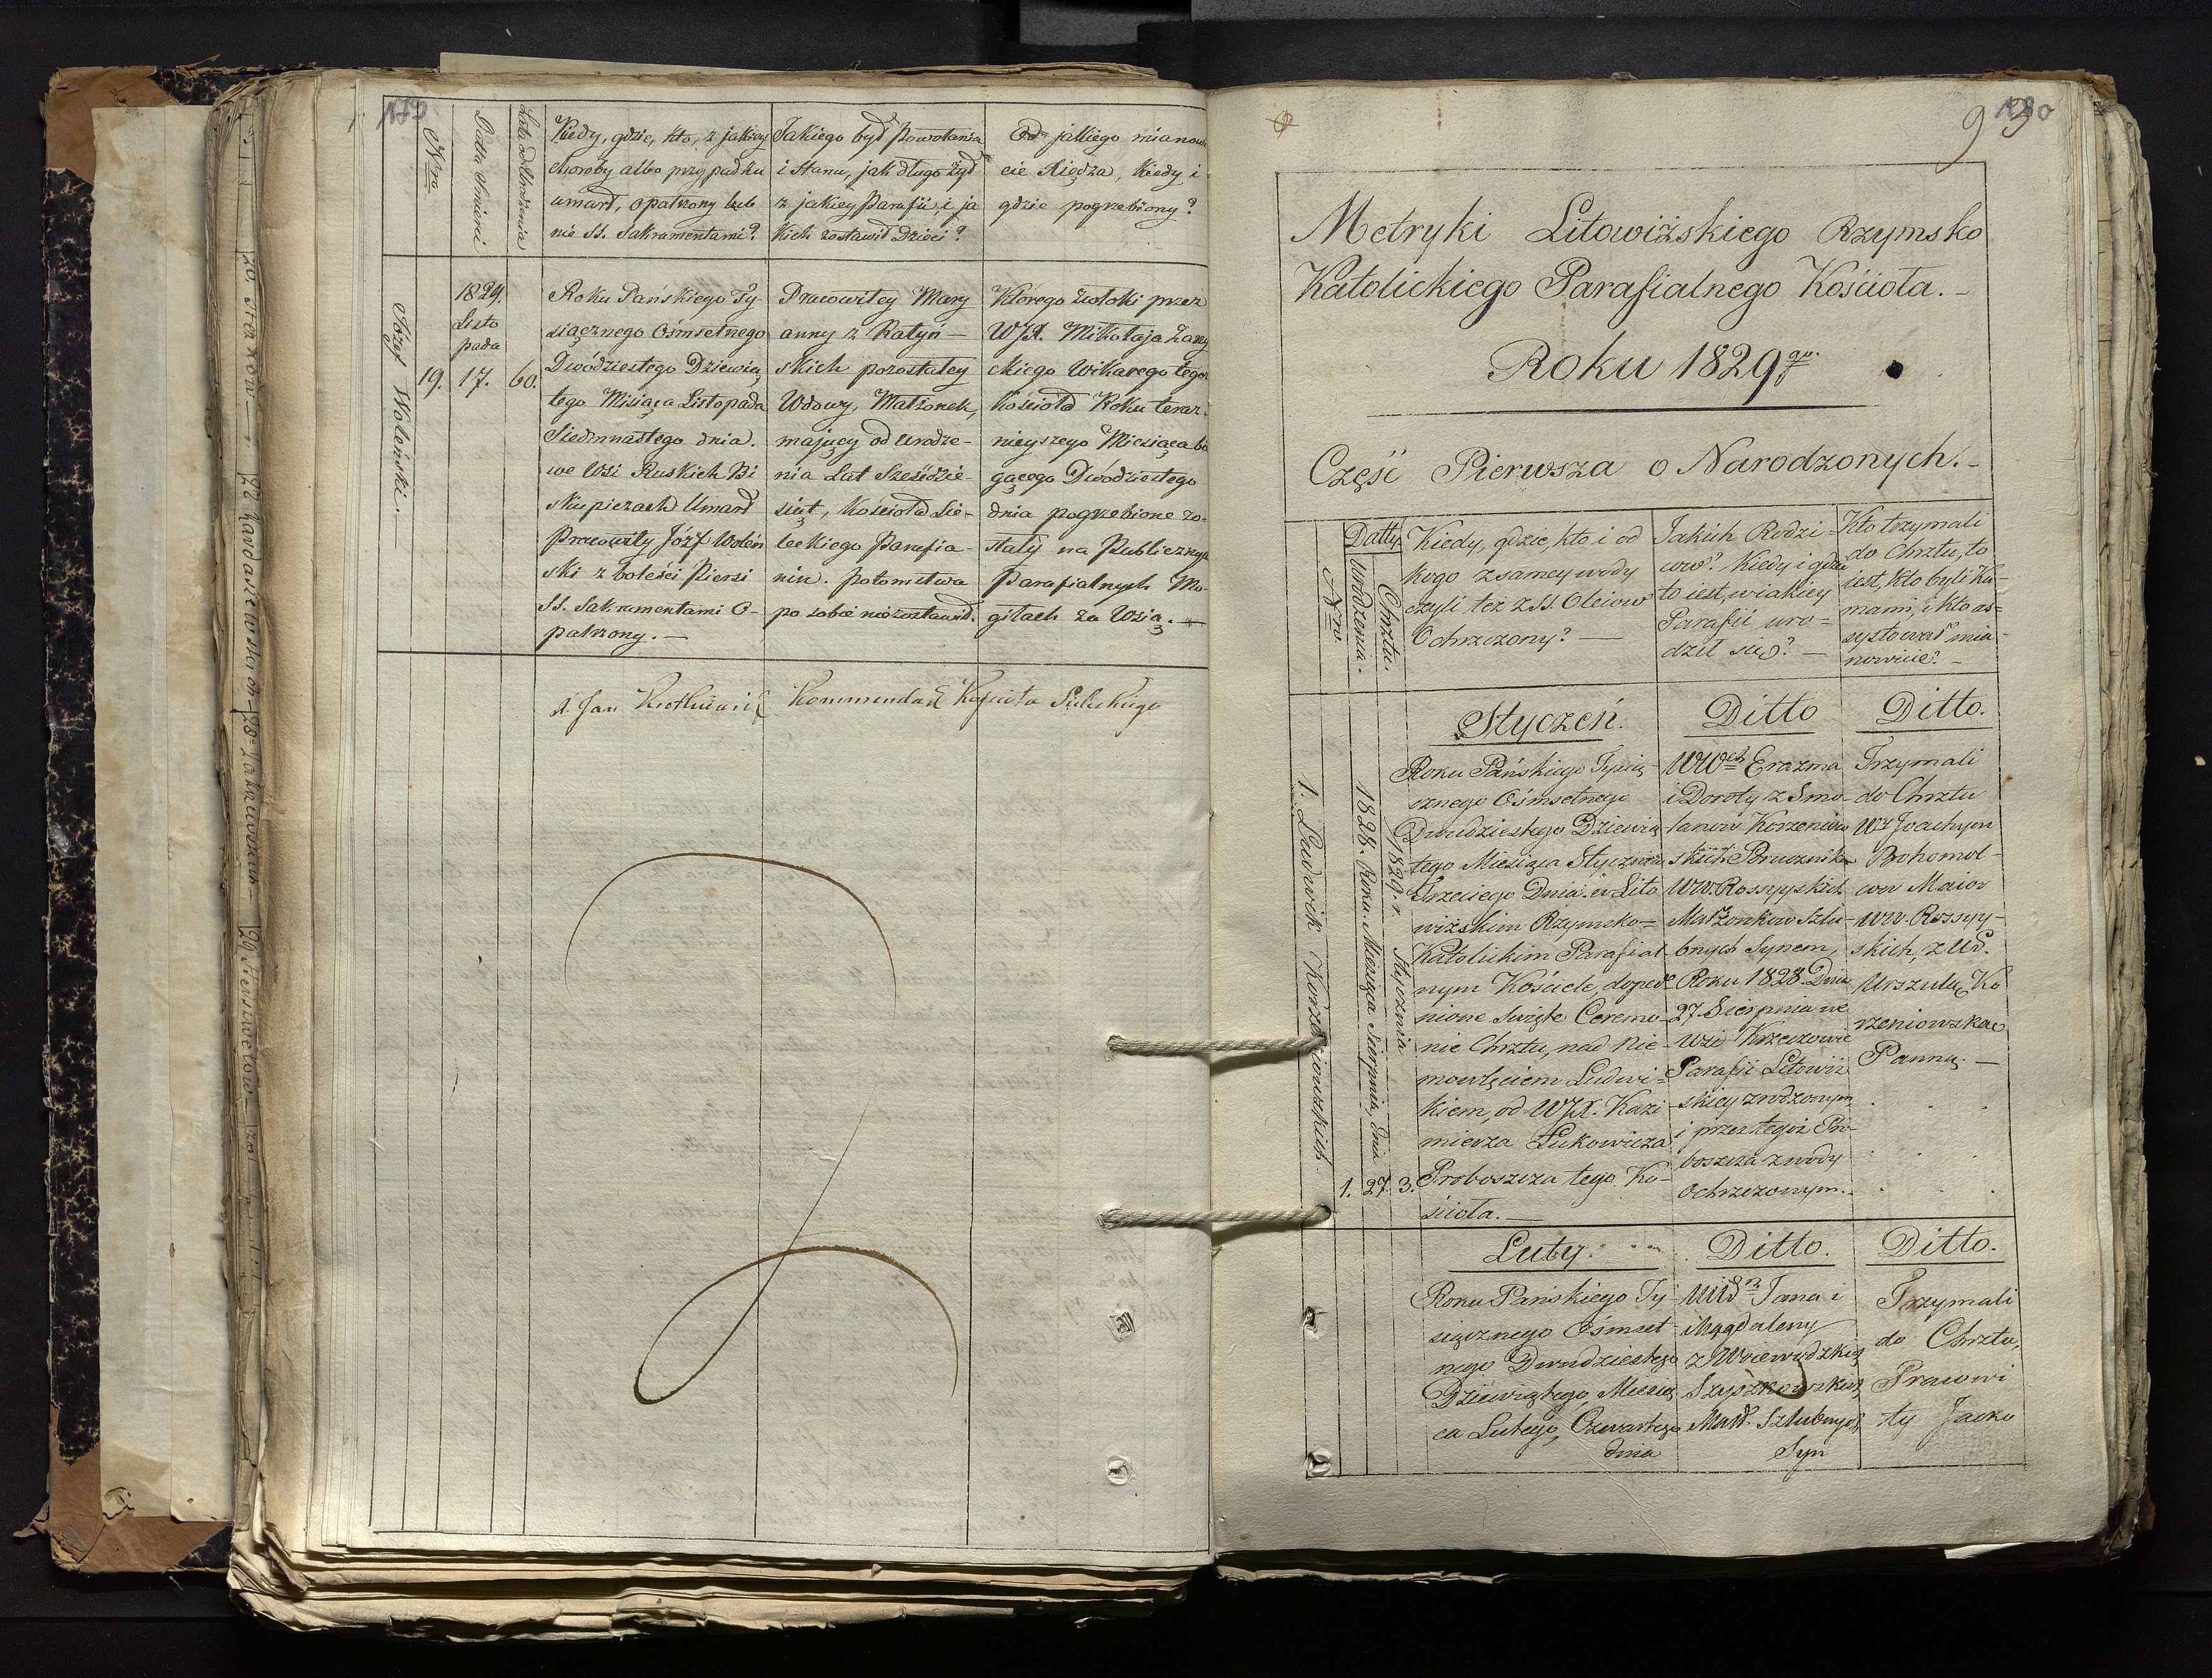 Nro
Datta Śmierci
Kiedy, gdzie, kto, z jakiey
choroby albo przypadku
umarł, opatrzony lub
nie SS. Sakramentami?
Jakiego był Powołania
i Stanu, jak długo żył
z jakiey Parafii, i ja
kich zostawił Dzieci?
Od jakiego mianowi
cie Xiędza, Kiedy i
gdzie pogrzebiony?
Józef Woleński.
19.
1829.
Listo
pada
17.
60.
Roku Pańskiego Ty
siącznego Ośmsetnego
Dwódziestego Dziewią
tego Misiąca Listopada
Siedmnastego dnia.
we Wsi Ruskich Bi
skupiczach Umarł
Pracowity Józef Woleń
ski z boleści Piersi
SS. Sakramentami O-
patrzony. —
Pracowitey Mary
anny z Ratyń —
skich pozostałey
Wdowy, Małżonek,
mający od urodze-
nia Lat Sześćdzie-
siąt, Kościoła Sie-
leckiego Parafia-
nin. potomstwa
po sobie nie zostawił.
Którego zwłoki przez
WJX. Mikołaja
ckiego Wikarego tegoż
Kościoła Roku teraz-
nieyszego Miesiąca bi
gącego Dwódziestego
dnia pogrzebione zo-
stały na Publicznych
Parafialnych Mo-
giłach za Wsią. —
X. Jan Kommendarz Kościoła
Metryki Litowiżskiego Rzymsko
Katolickiego Parafialnego Kościoła. —
Roku 1829go.
Część Pierwsza o Narodzonych. —
Nro.
Datty
Urodzenia.
Chrztu.
Kiedy, gdzie, kto i od
kogo z samey wody
czyli też z SS. Oleiow
Ochrzczony? —
Jakich Rodzi-
cow? Kiedy i gdzie
to iest, w iakiey
Parafii uro=
dził się? —
Kto trzymali
do Chrztu, to
iest, kto byli Ku-
mami, i kto as=
systował mia-
nowicie? —
Styczeń.
Ditto
Ditto.
1. Ludwik Korzeniowskich.
1828. Roku. Miesiąca Sierpnia, Dnia
1829. r. Stycznia
1. 27. 3.
Roku Pańskiego Tysią-
cznego Ośmsetnego
Dwudziestego Dziewią
tego Miesiąca Stycznia
Trzeciego Dnia. w Lito
wiżskim Rzymsko=
Katolickim Parafial
nym Kościele, dopeł
nione Święte Ceremo-
nie Chrztu, nad Nie-
mowlęciem Ludwi=
kiem, od WJX. Kazi-
mierza Łukowicza
Proboszcza tego Ko-
ścioła. —
WWch Erazma
i Doroty z Smo-
lanow Korzeniow
skich Porucznika
WW. Rossyyskich
Małżonkow Szlu-
bnych Synem,
Roku 1828. Dnia
27 Sierpnia we
Wsi Krzeczowie
Parafii Litowiż
skiey zrodzonym
i przez tegoż Pro-
boszcza z wody
Ochrzczonym.
Trzymali
do Chrztu
Wy Joachym
Bohomol-
cow Maior
WW. Rossyy-
skich, z Uł.
Urszulą Ko
rzeniowską
Panną. —
Luty.
Ditto.
Ditto.
Roku Pańskiego Ty-
siącznego Ośmset
nego Dwudziestego
Dziewiątego, Miesią
ca Lutego, Czwartego
dnia
Jana i
Magdaleny
z Woiewudzkich
Szyszkowskich
Małż. Szlubnych
Syn
Trzymali
do Chrztu,
Pracowi
ty Jacko